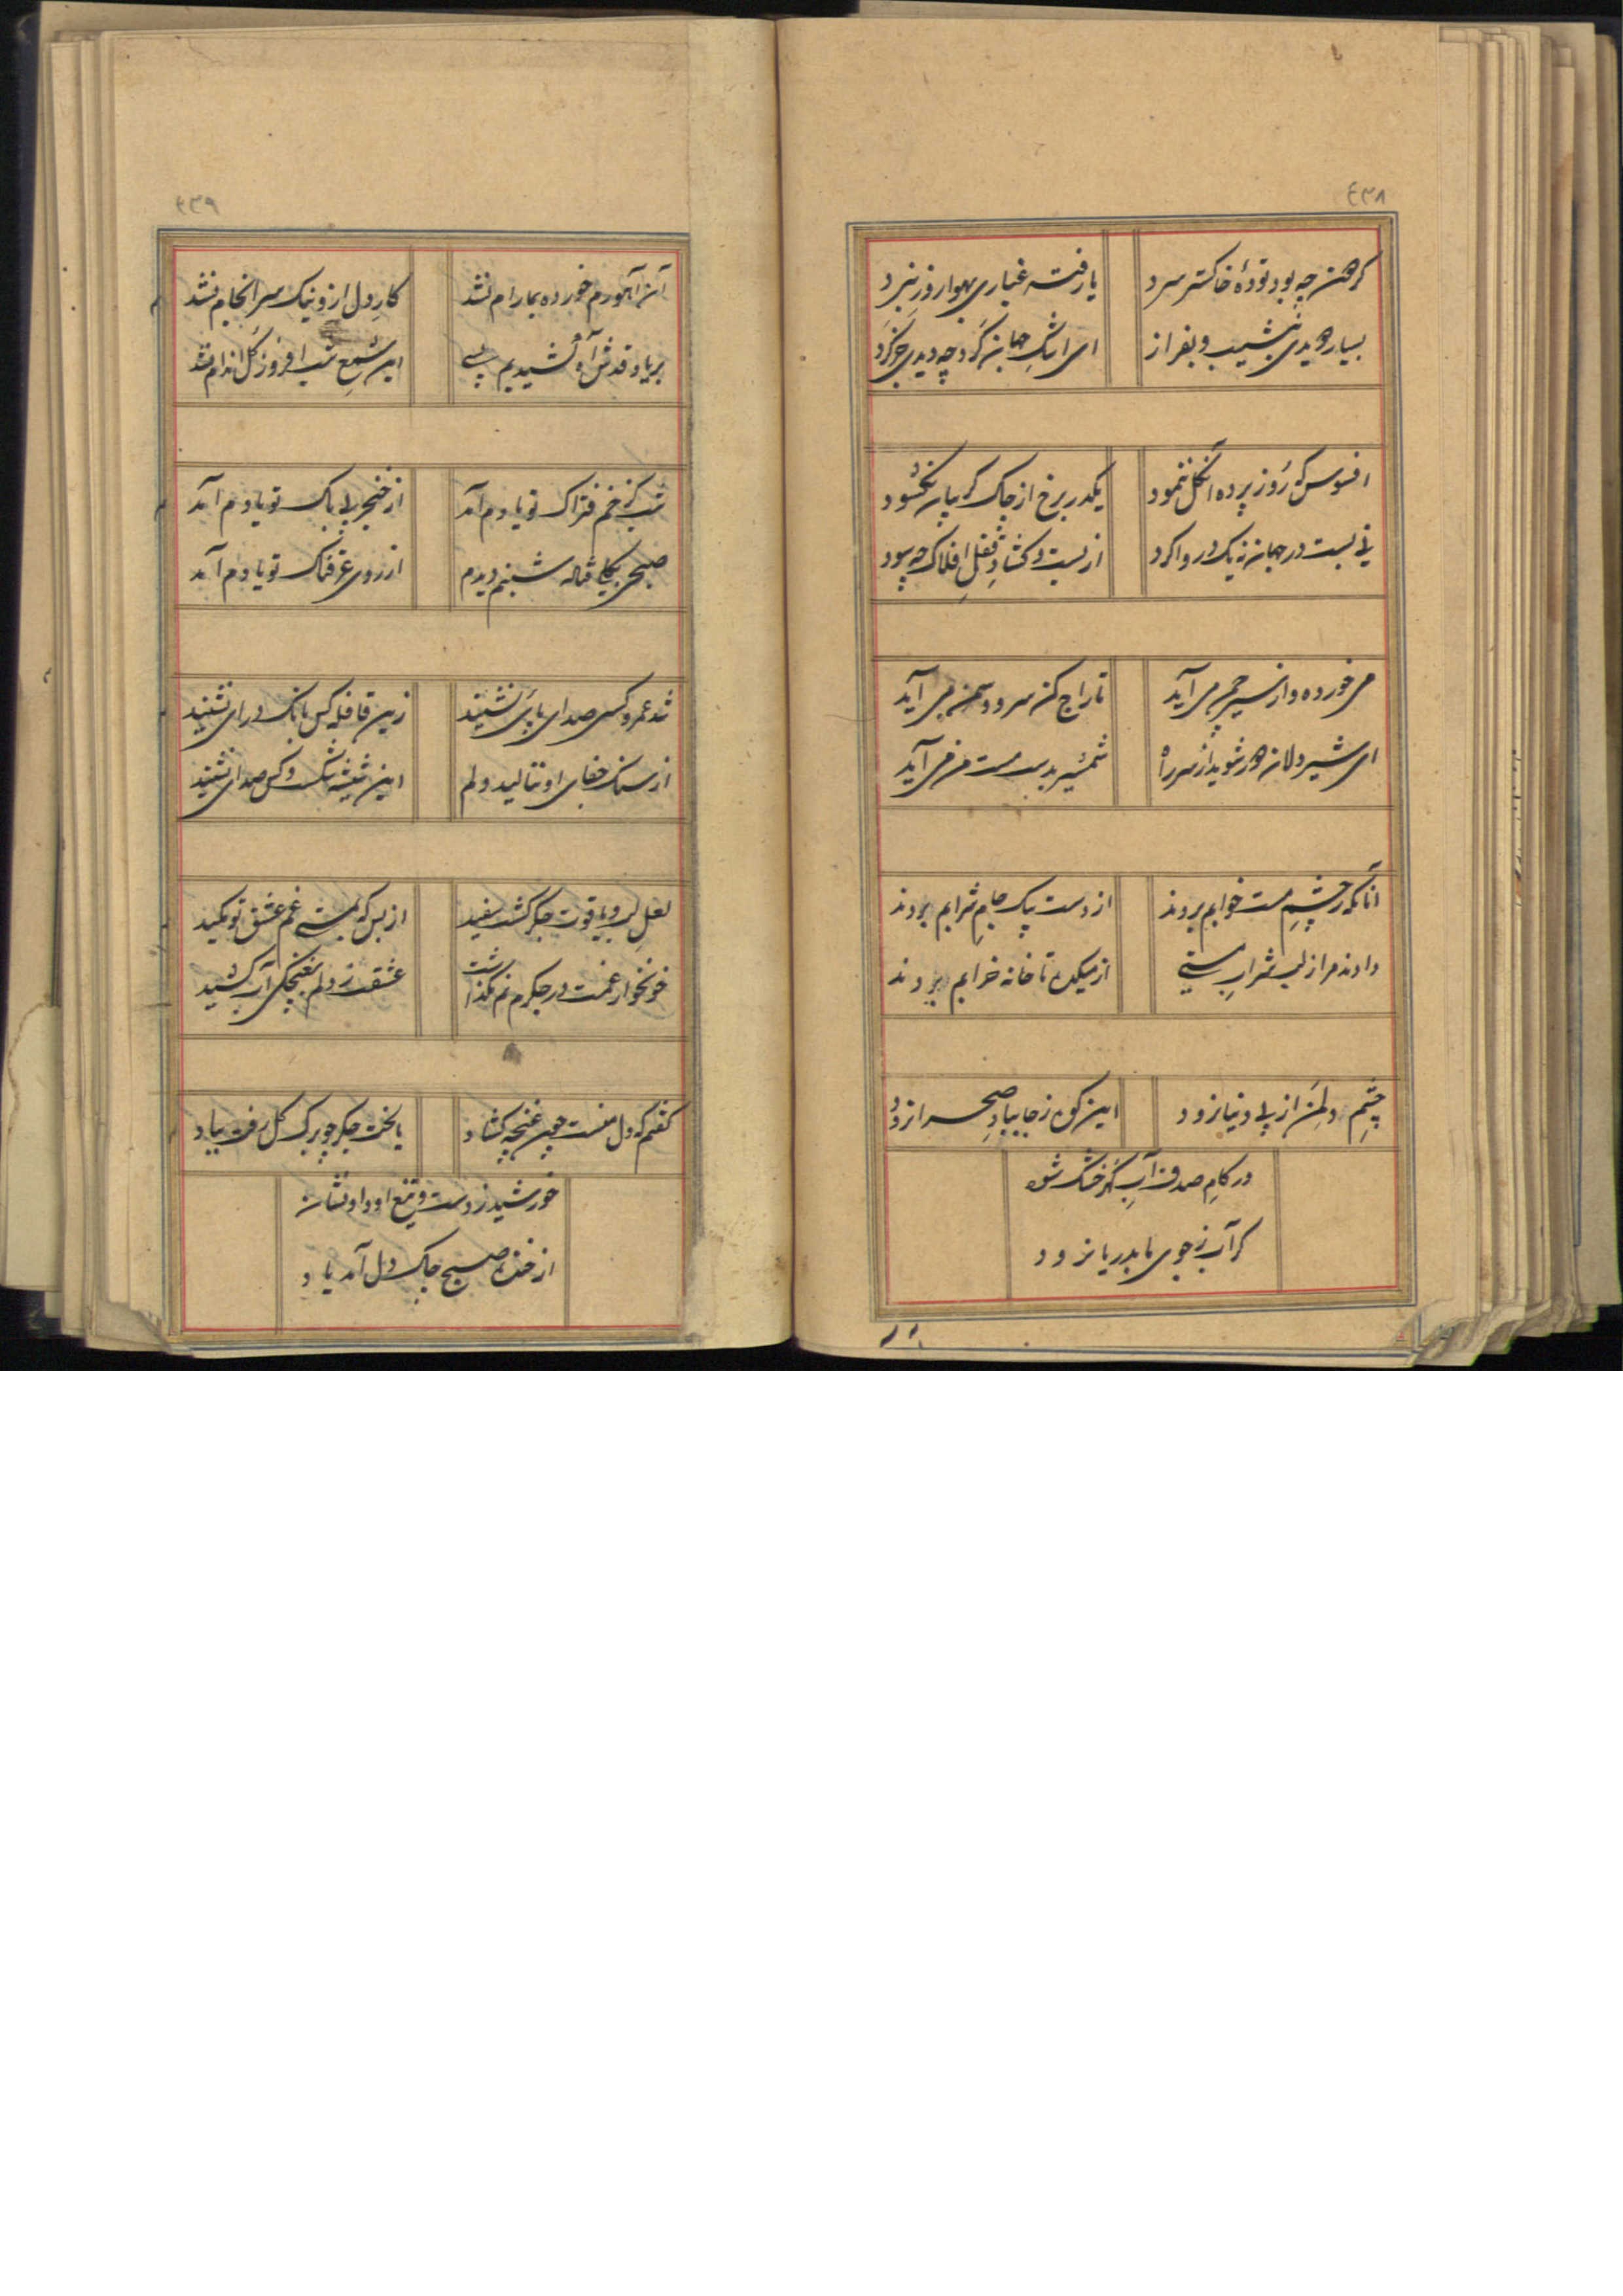 ٤٣٨
گردهن چه بود تودهٔ خاکستر سرد
یا رفته غباری بهوا روز نبرد
بسیار دویدی بنشیب و بفراز
ای اشک جهان گرد چه دیدی جز گرد
افسوس که روز پرده آن گل ننمود
یکدر برخ از چاک گریبان نگشود
نی بست در جهان نه یک در وا کرد
از بست و گشاد قفل افلاک چه سود
می خورده و از سیر چمن می آید
تاراج کن سرو و سمن می آید
ای شیردلان دور شوید از سر راه
شمشیر بدست مست من می آید
آنانکه ز چشم مست خوابم بردند
از دست بیک جام شرابم بردند
دادند مرا ز لب شراب مستی
از میکده تا خانه خرابم بردند
چشم و دل من از پی دنیا نرود
این کوه ز جا بباد صحرا نرود
در کام صدف آب گهر خشک شود
گر آب ز جوی ما بدریا نرود
٤٣٩
آن آهوی رم خورده بما رام نشد
کار دل ازو نیک سرانجام نشد
بر یاد قدش آه کشیدیم بسی
این شمع شب افروز گل اندام نشد
شب کز خم فتراک تو یادم آمد
از خنجر بی باک تو یادم آمد
صبحی بگل و لاله شبنم دیدم
از روی عرقناک تو یادم آمد
شد عمر و کسی صدای پایی نشنید
زین قافله کس بانگ درای نشنید
از سنگ جفای او ننالید دلم
این شیشه شکست و کس صدای نشنید
لعل لب و یاقوت جگر گشت سفید
از بس که غم عشق تو مکید
خونخوار غمت در جگرم نم نگذاشت
عشقت ز دلم آب کشید
گفتم که دل منست چون غنچه گشاد
یا لخت جگر چو برگ گل رفت بباد
خورشید ز دست و تیغ او داد نشان
از خنده صبح چاک دل آمد یاد